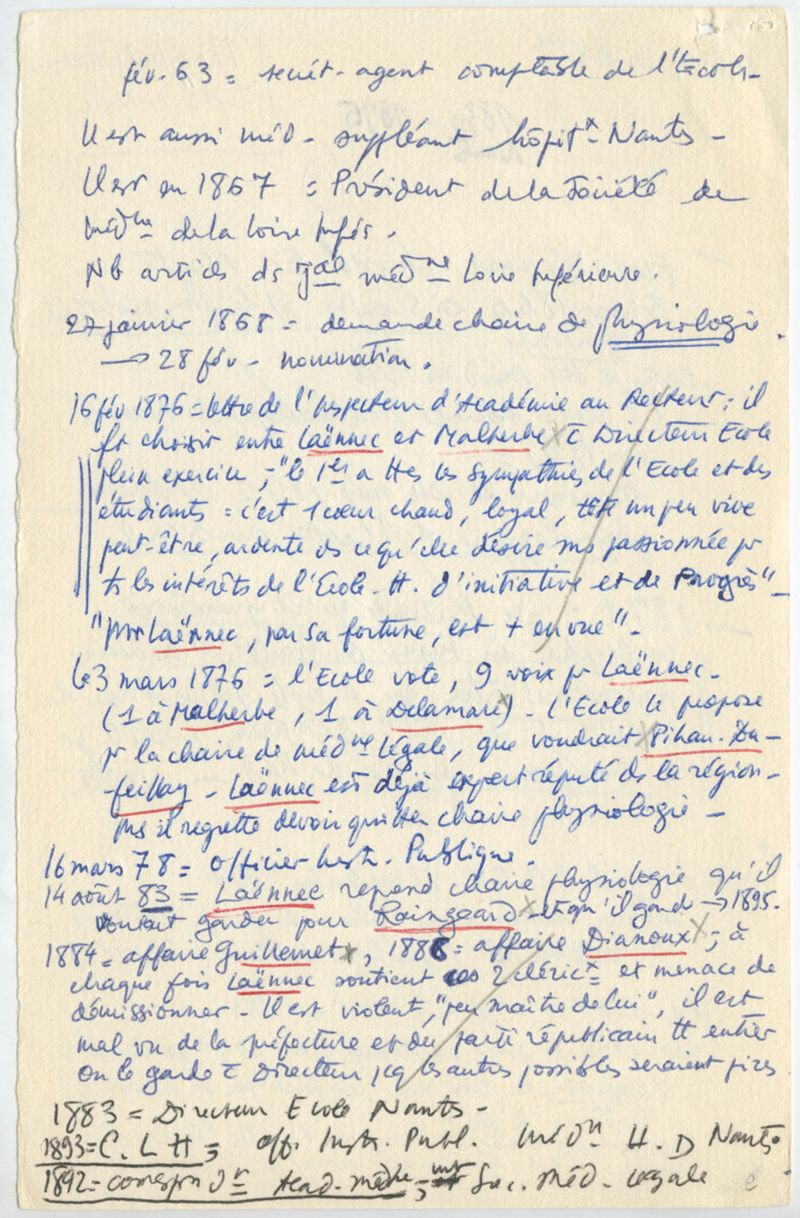 fév. 63 = secrét- agent comptable de l'Ecole-
Il est aussi méd - suppléant hôpitx - Nantes -
Il est en 1867 = Président de la Société de
médne de la Loire Infér.
Nb articles ds jal médne Loire Inférieure.
27 janvier 1868 = demande chaire de physiologie.
→ 28 fév - nomination.
16 fév 1876 = lettre de l'Inspecteur d'Académie au Recteur : il
ft choisir entre Laënnec et Malherbe x c̄ Directeur Ecole
plein exercice ; "le 1er a ttes les sympathies de l'Ecole et des
étudiants = c'est 1 cœur chaud, loyal, tête un peu vive
peut-être, ardente ds ce qu'elle désire ms passionnée pr
ts les intérêts de l'Ecole - H. d'initiative et de Progrès" -
"Mr Laënnec, par sa fortune, est + en vue" -
le 3 mars 1876 = l'Ecole vote, 9 voix pr Laënnec -
(1 à Malherbe, 1 à Delamare x) - l'Ecole le propose
pr la chaire de médne légale, que voudrait x Pihan-Du-
feillay - Laënnec est déjà expert réputé ds la région -
ms il regrette devoir quitter chaire physiologie -
16 mars 78 = officier Instr. Publique.
14 août 83 = Laënnec reprend chaire physiologie qu'il
voulait garder pour Raingeard x et qu'il garde → 1895.
1884 = affaire Guillemet x, 1886 = affaire Dianoux x ; à
chaque fois Laënnec soutient ces 2 cléricx et menace de
démissionner - Il est violent, "peu maître de lui", il est
mal vu de la préfecture et du parti républicain tt entier
On le garde c̄ Directeur pcq les autres possibles seraient pires
1883 = Directeur Ecole Nantes -
1893 = C. L H = off. Instr. Publ. Médn H. D Nantes
1892 = correspondr Acad. médne ; Soc. Méd. légale
e